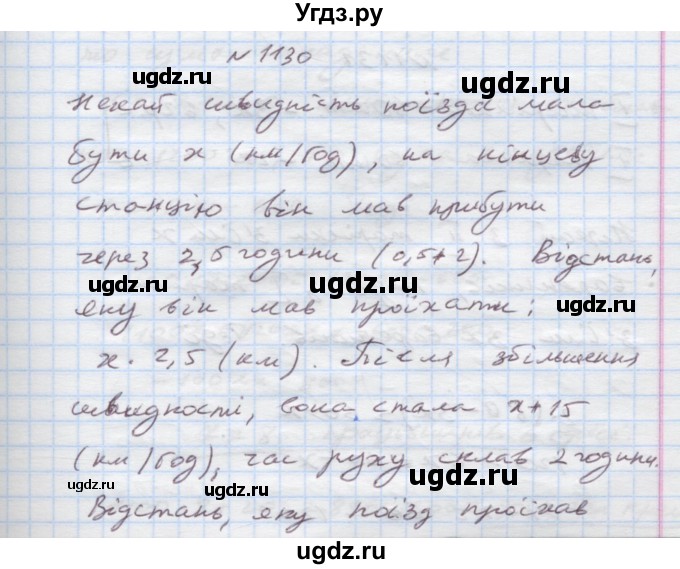 Угдз.ру
N 1130
ugdz.ru ugdz.ru
Нехай швидкість поїзда мала
бути x (км/год), на кінцеву
станцію він мав прибути
через 2,5 години (0,5+2). Відстань,
ugdz.ru ugdz.ru
яку він мав проїхати:
x · 2,5 (км). Після збільшення
швидкості, вона стала x+15
(км/год), час руху склав 2 години.
ugdz.ru ugdz.ru ugdz.ru
Відстань, яку поїзд проїхав
ugdz.ru